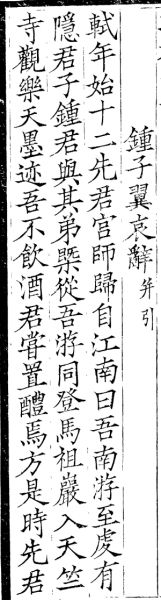 鍾子翼哀辭并引
軾年始十二先君宫師歸自江南曰吾南游至虔有
隱君子鍾君與其弟槩從吾游同登馬祖巖入天竺
寺觀樂天墨迹吾不飲酒君甞置醴焉方是時先君